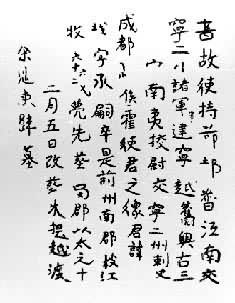 晉故使持節都督江南交
寧二州諸軍建寧越嶲興古三
南夷校尉交寧二州刺史
成都侯霍使君之像君諱
字承嗣卒是荊州南郡枝江
牧六十六歲薨先葬蜀郡以太元十
二月五日改葬朱提越渡
余魂來歸墓